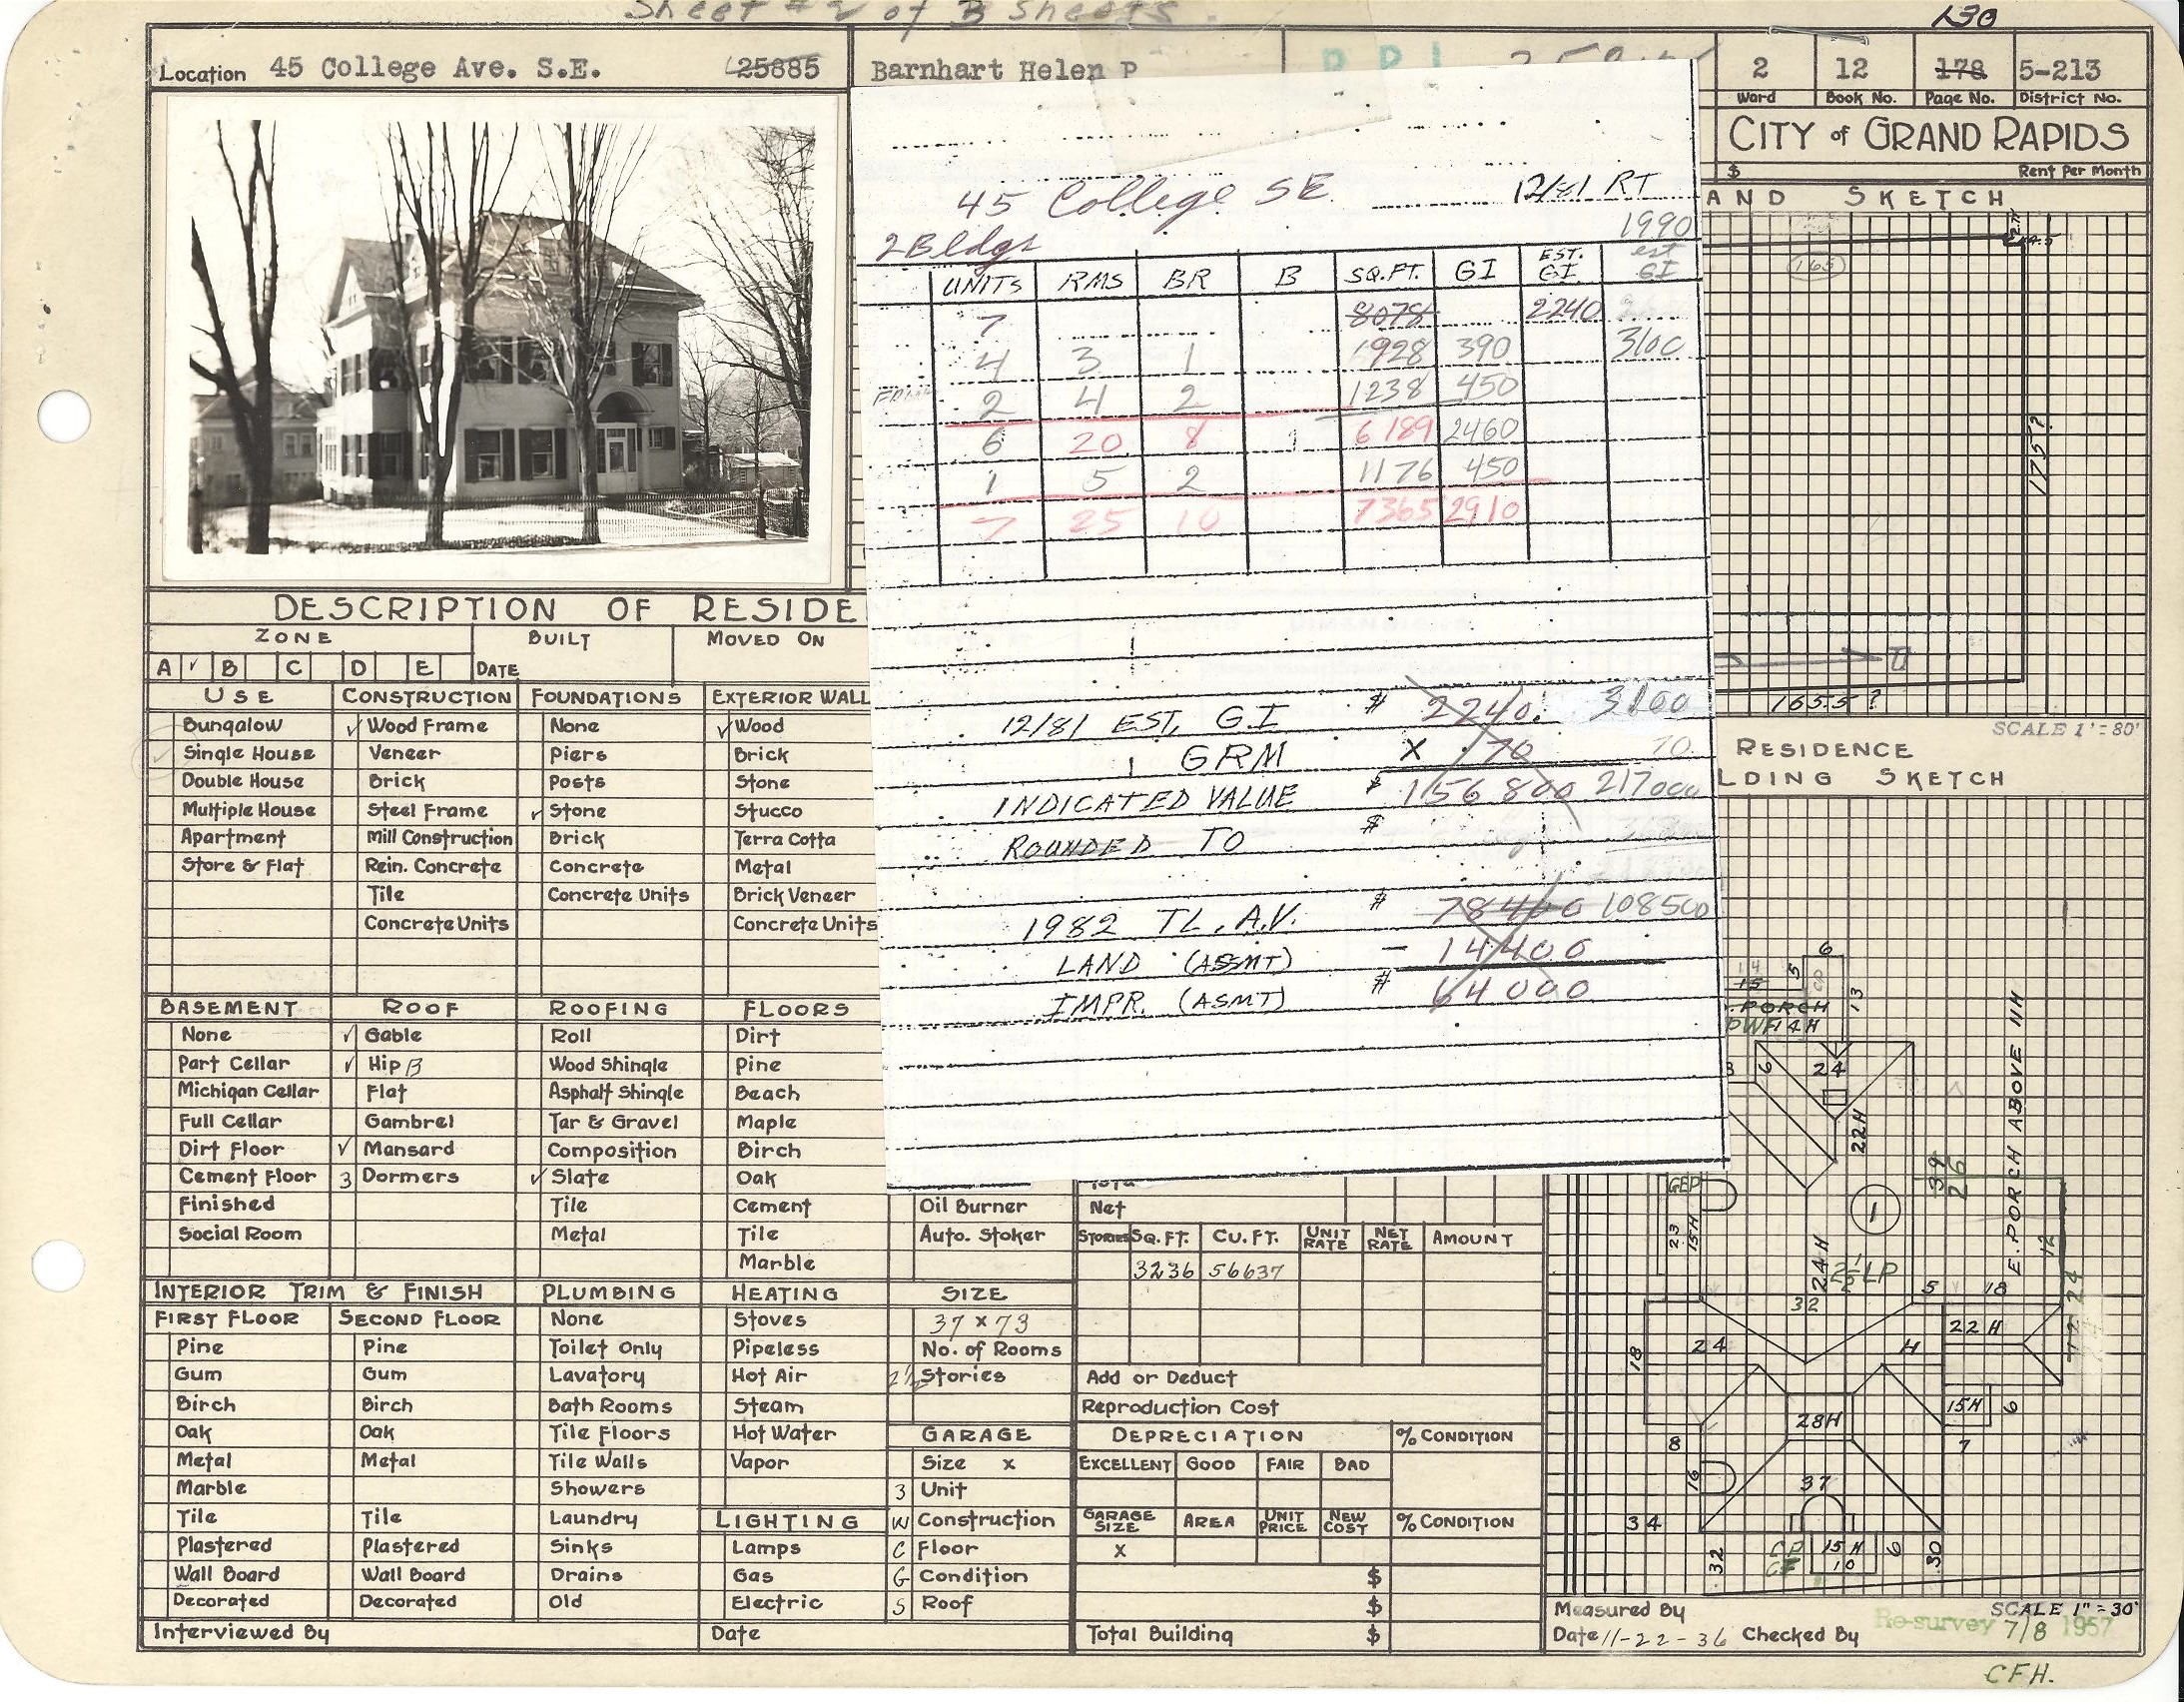 Sheet #2 of 3 Sheets.
130
Location 45 College Ave. S.E. 25885
Barnhart Helen P
2 12 178 5-213
Ward Book No. Page No. District No.
CITY of GRAND RAPIDS
$ Rent Per Month
AND SKETCH
165
175?
165.5?
SCALE 1"=80'
RESIDENCE
LDING SKETCH
45 College SE 12/81 RT
1990
2 Bldgs
UNITS RMS BR B SQ.FT. GI EST. GI. est GI
7 8078 2240
4 3 1 1928 390 3100
2 4 2 1238 450
6 20 8 6189 2460
1 5 2 1176 450
7 25 10 7365 2910
12/81 EST, GI $ 2240. 3100
GRM X 70 70
INDICATED VALUE $ 156800 217000
ROUNDED TO $
1982 TL. A.V. $ 78400 108500
LAND (ASSMT) - 14400
IMPR. (ASMT) $ 64000
DESCRIPTION OF RESIDE
ZONE BUILT MOVED ON
A ✓ B C D E DATE
USE CONSTRUCTION FOUNDATIONS EXTERIOR WALL
Bungalow ✓ Wood Frame None ✓ Wood
✓ Single House Veneer Piers Brick
Double House Brick Posts Stone
Multiple House Steel Frame ✓ Stone Stucco
Apartment Mill Construction Brick Terra Cotta
Store & Flat Rein. Concrete Concrete Metal
Tile Concrete Units Brick Veneer
Concrete Units Concrete Units
BASEMENT ROOF ROOFING FLOORS
None ✓ Gable Roll Dirt
Part Cellar ✓ Hip B Wood Shingle Pine
Michigan Cellar Flat Asphalt Shingle Beach
Full Cellar Gambrel Tar & Gravel Maple
Dirt Floor ✓ Mansard Composition Birch
Cement Floor 3 Dormers ✓ Slate Oak
Finished Tile Cement Oil Burner Net
Social Room Metal Tile Auto. Stoker
Marble
STORIES SQ. FT. CU. FT. UNIT RATE NET RATE AMOUNT
3236 56637
INTERIOR TRIM & FINISH PLUMBING HEATING SIZE
FIRST FLOOR SECOND FLOOR None Stoves 37 x 73
Pine Pine Toilet Only Pipeless No. of Rooms
Gum Gum Lavatory Hot Air 2½ Stories Add or Deduct
Birch Birch Bath Rooms Steam Reproduction Cost
Oak Oak Tile Floors Hot Water GARAGE DEPRECIATION % CONDITION
Metal Metal Tile Walls Vapor Size x EXCELLENT GOOD FAIR BAD
Marble Showers 3 Unit
Tile Tile Laundry LIGHTING W Construction GARAGE SIZE AREA UNIT PRICE NEW COST % CONDITION
Plastered Plastered Sinks Lamps C Floor x
Wall Board Wall Board Drains Gas G Condition $
Decorated Decorated Old Electric S Roof $
Interviewed By Date Total Building $
6
5
13
PORCH
14H
6 24
22H
E. PORCH ABOVE 11H
39
26
GEP
23 15H
1
24H
2½ LP
12
32 5 18
24
22H
18 24 H
15H 6
28H
8 7
16 37
34
32 CP 15H 10 6 30
SCALE 1"=30'
Measured By
Date 11-22-36 Checked By
Re-survey 7/8 1957
CFH.